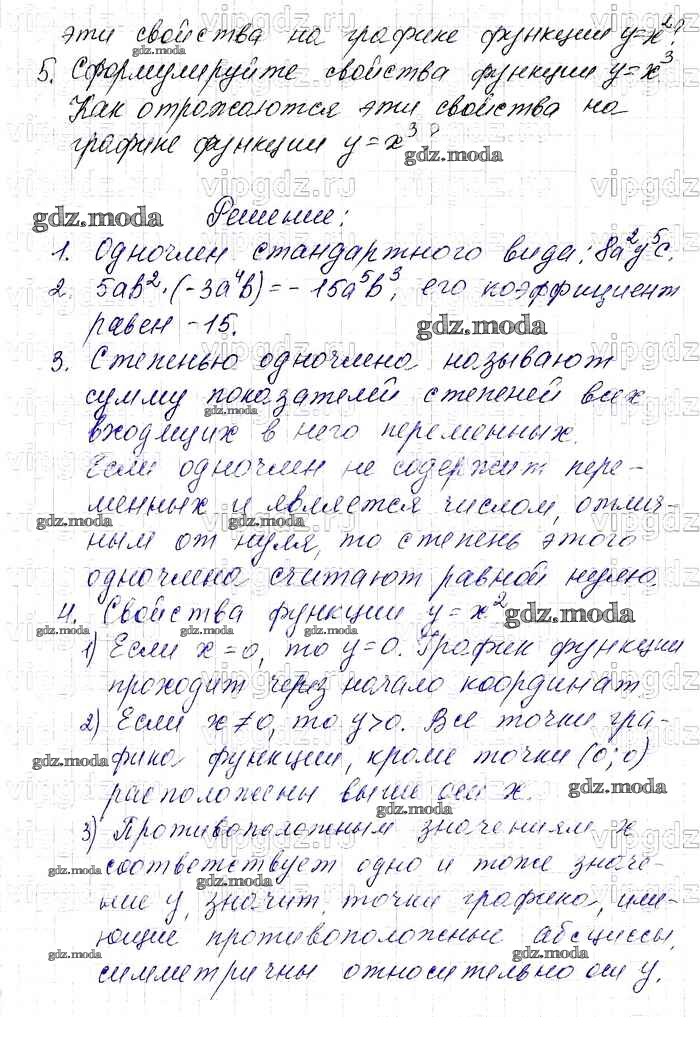 эти свойства на графике функции y=x²?
5. Сформулируйте свойства функции y=x³
Как отражаются эти свойства на
графике функции y=x³?
gdz.moda
gdz.moda
Решение:
1. Одночлен стандартного вида: 8a²y⁵c.
2. 5ab²·(-3a⁴b)=-15a⁵b³, его коэффициент
равен -15.
gdz.moda
3. Степенью одночлена называют
сумму показателей степеней всех
входящих в него переменных.
Если одночлен не содержит пере-
менных и является числом, отлич-
ным от нуля, то степень этого
одночлена считают равной нулю.
4. Свойства функции y=x²
gdz.moda
1) Если x=0, то y=0. График функции
проходит через начало координат.
2) Если x≠0, то y>0. Все точки гра-
фика функции, кроме точки (0;0)
расположены выше оси x.
gdz.moda
3) Противоположным значениям x
соответствует одно и тоже значе-
ние y, значит, точки графика, име-
ющие противоположные абсциссы,
симметричны относительно оси y.